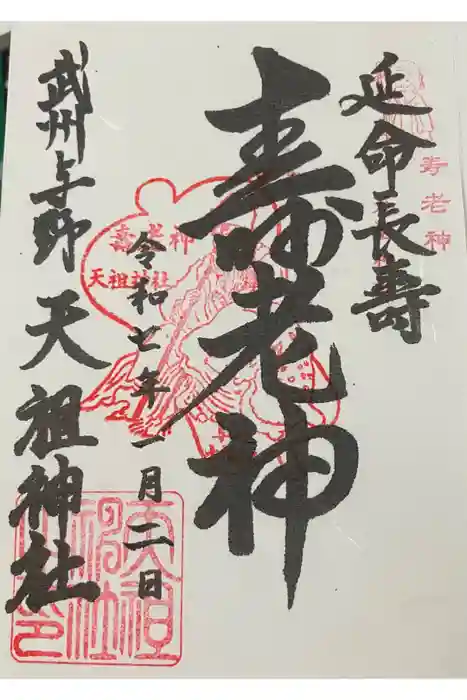 延命長壽
寿老神
壽老神
壽老神
天祖神社
令和七年一月二日
武州与野 天祖神社
天祖
神社